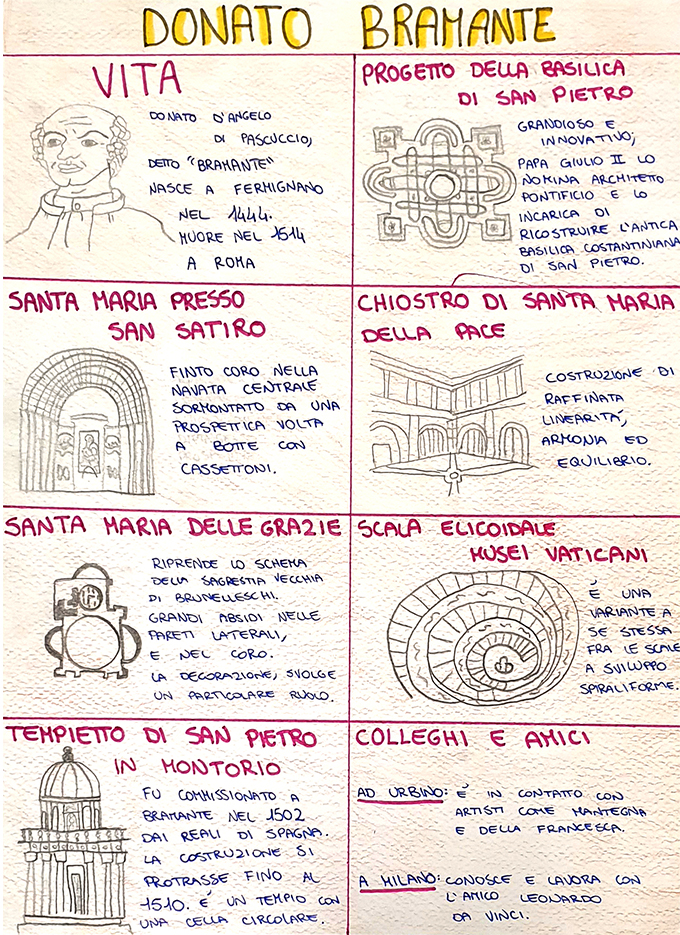 DONATO BRAMANTE
VITA
DONATO D'ANGELO
DI PASCUCCIO,
DETTO "BRAMANTE"
NASCE A FERMIGNANO
NEL 1444.
MUORE NEL 1514
A ROMA
PROGETTO DELLA BASILICA
DI SAN PIETRO
GRANDIOSO E
INNOVATIVO;
PAPA GIULIO II LO
NOMINA ARCHITETTO
PONTIFICIO E LO
INCARICA DI
RICOSTRUIRE L'ANTICA
BASILICA COSTANTINIANA
DI SAN PIETRO.
SANTA MARIA PRESSO
SAN SATIRO
FINTO CORO NELLA
NAVATA CENTRALE
SORMONTATO DA UNA
PROSPETTICA VOLTA
A BOTTE CON
CASSETTONI.
CHIOSTRO DI SANTA MARIA
DELLA PACE
COSTRUZIONE DI
RAFFINATA
LINEARITÁ,
ARMONIA ED
EQUILIBRIO.
SANTA MARIA DELLE GRAZIE
RIPRENDE LO SCHEMA
DELLA SAGRESTIA VECCHIA
DI BRUNELLESCHI.
GRANDI ABSIDI NELLE
PARETI LATERALI,
E NEL CORO.
LA DECORAZIONE, SVOLGE
UN PARTICOLARE RUOLO.
SCALA ELICOIDALE
MUSEI VATICANI
É UNA
VARIANTE A
SE STESSA
FRA LE SCALE
A SVILUPPO
SPIRALIFORME.
TEMPIETTO DI SAN PIETRO
IN MONTORIO
FU COMMISSIONATO A
BRAMANTE NEL 1502
DAI REALI DI SPAGNA.
LA COSTRUZIONE SI
PROTRASSE FINO AL
1510. É UN TEMPIO CON
UNA CELLA CIRCOLARE.
COLLEGHI E AMICI
AD URBINO: É IN CONTATTO CON
ARTISTI COME MANTEGNA
E DELLA FRANCESCA.
A MILANO: CONOSCE E LAVORA CON
L'AMICO LEONARDO
DA VINCI.